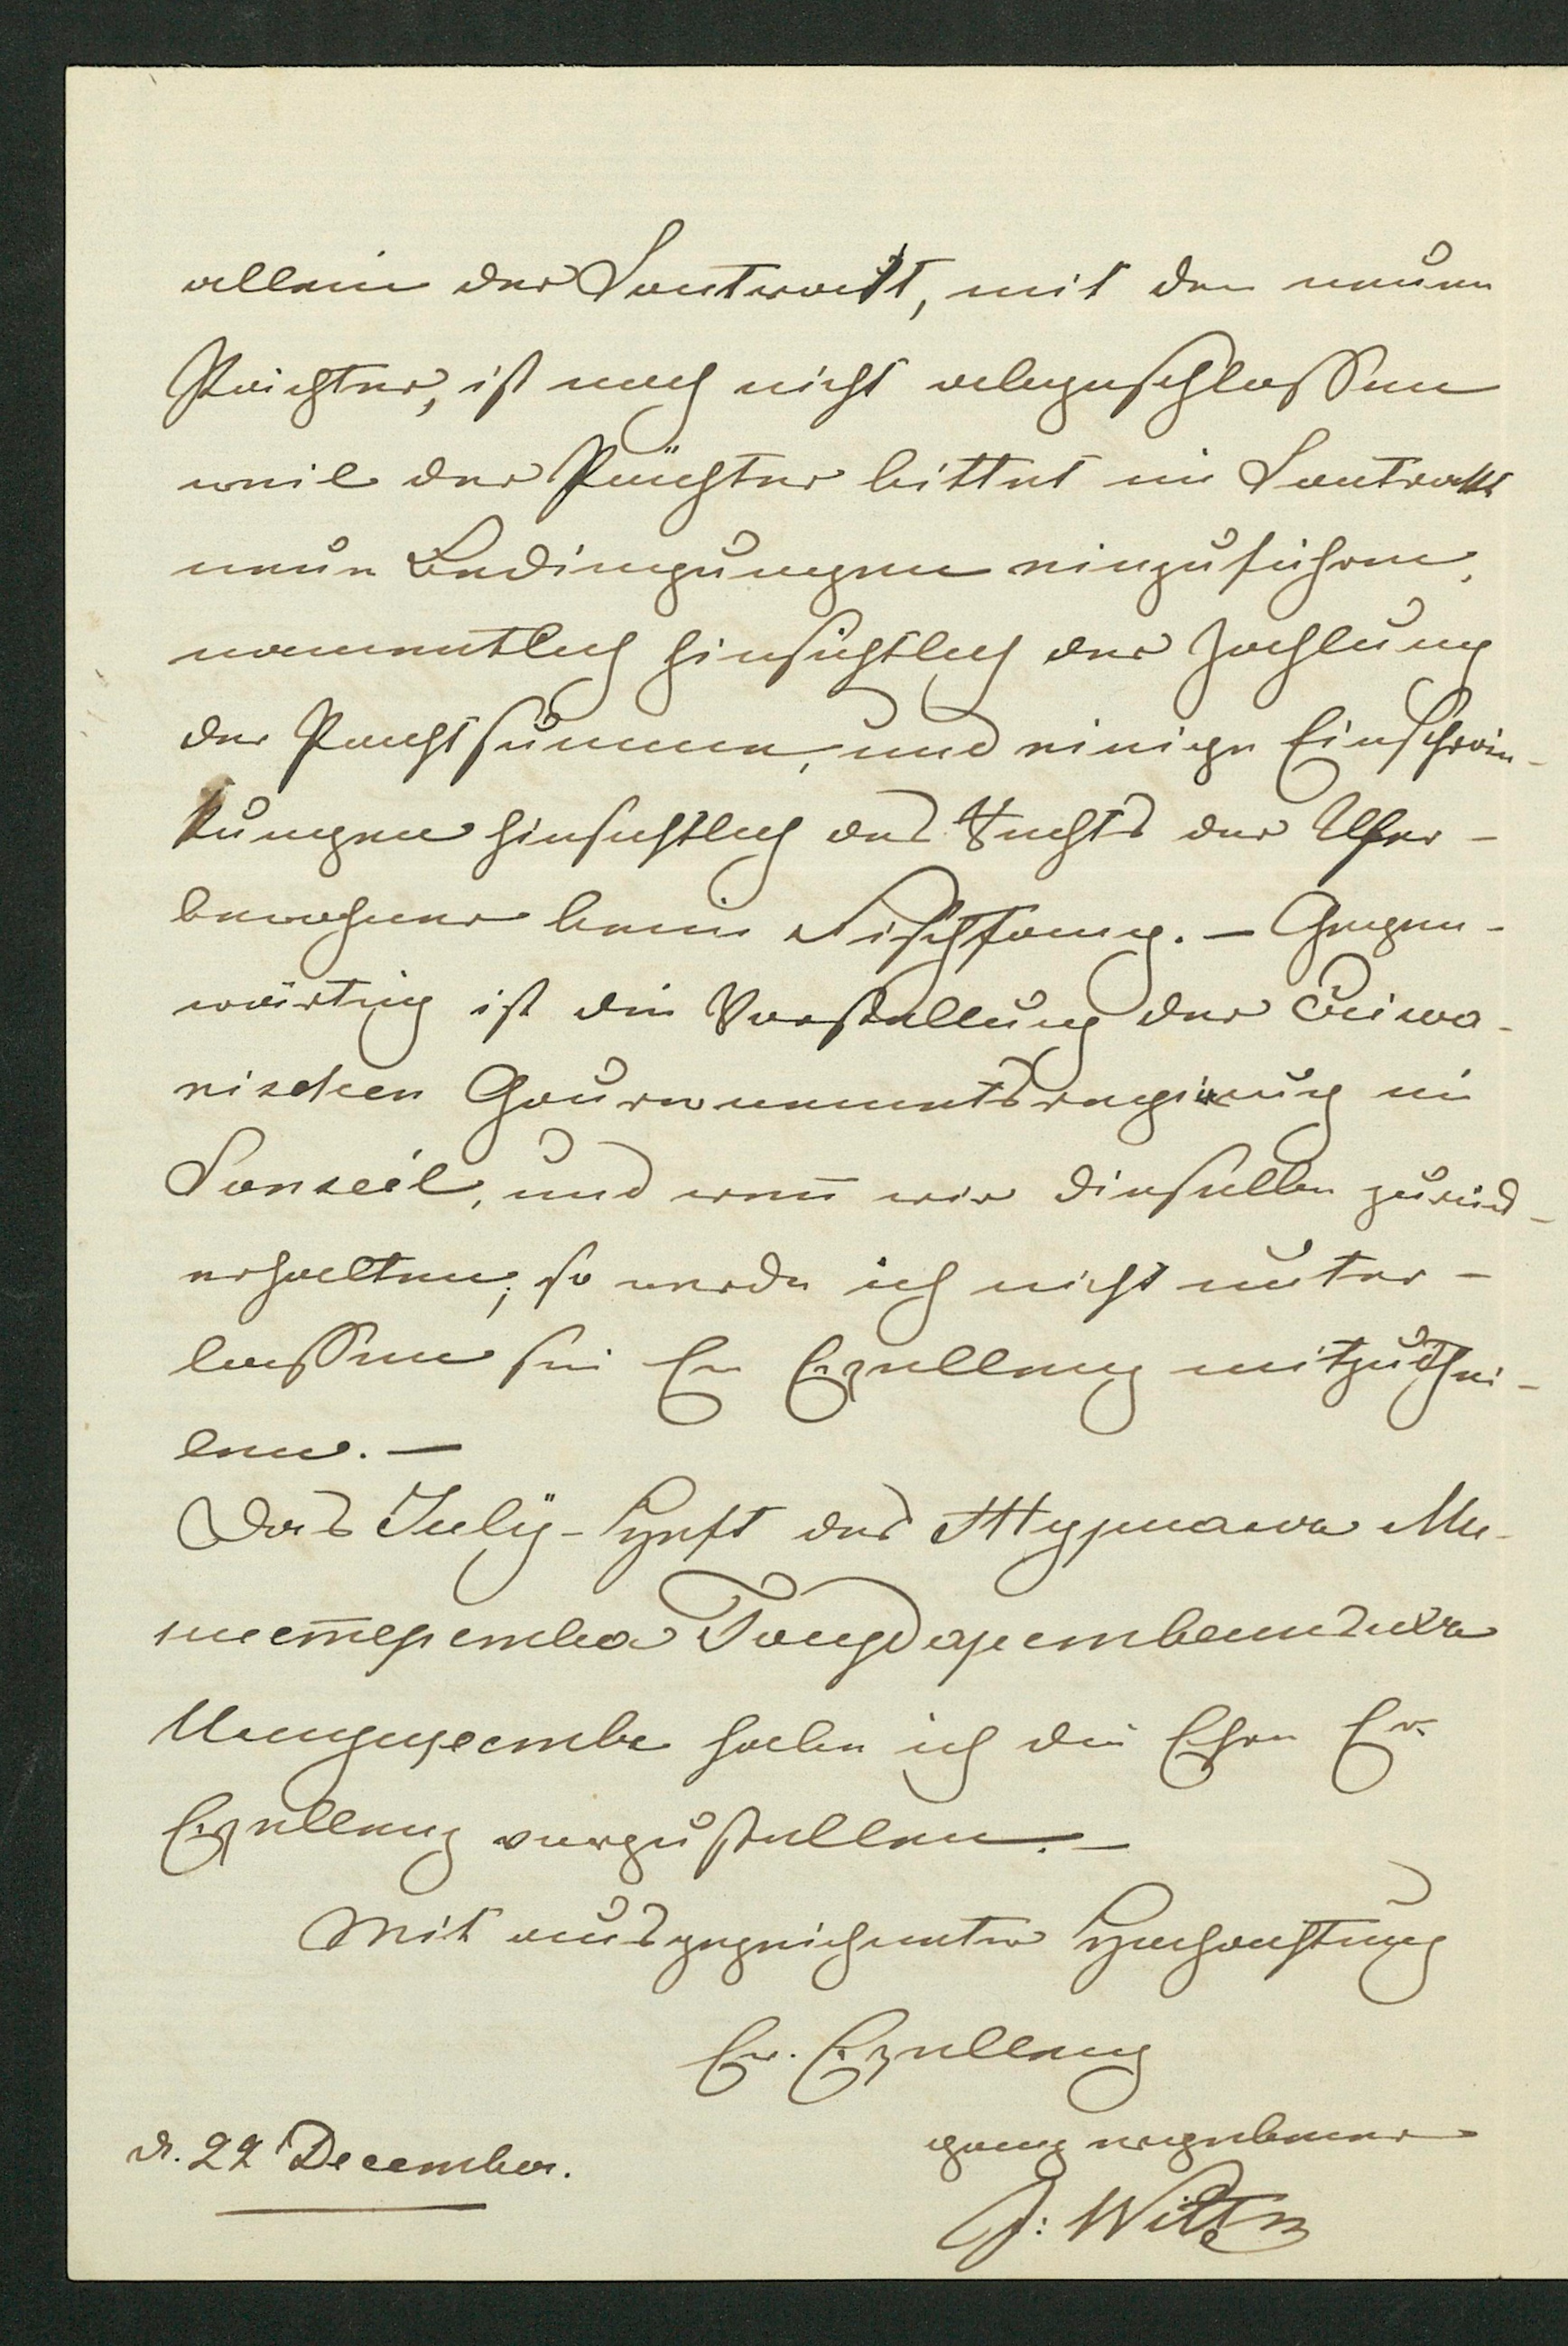 allein der Contrackt, mit den neuen
Pächter, ist noch nicht abgeschlossen
weil der Pächter bittet im Contrakt
neue Bedingungen einzuführen,
namentlich hinsichtlich der Zahlung
der Pachtsumme, und einige Einschrän-
kungen hinsichtlich des Rechts der Ufer-
bewohner beim Fischfang. – Gegen-
wärtig ist die Vorstellung der Eriwa-
nischen Gouvernementsregierung im
Conseil, und wenn wir dieselbe zurück-
erhalten, so werde ich nicht unter-
lassen sie Ew Exzellenz mitzuthei-
len. –
Das July-Heft des Журнала Ми-
нистерства Государственныхъ
Имуществъ habe ich die Ehre Ew.
Exzellenz vorzustellen. –
Mit ausgezeichneter Hochachtung
Ew. Exzellenz
ganz ergebener
d. 22 December.
J: Witte